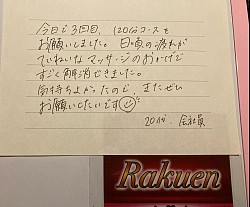 今日で3回目、120分コースを
お願いしました。日頃の疲れが
ていねいなマッサージのおかげで
すごく解消できました。
気持ちよかったので、またぜひ
お願いしたいです
20代 会社員
Rakuen